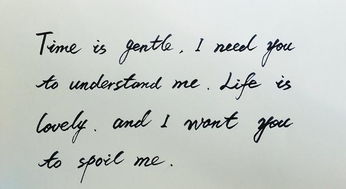 Time is gentle, I need you
to understand me. Life is
lovely. and I want you
to spoil me.